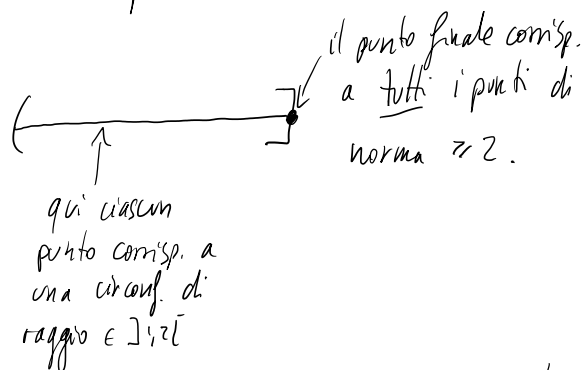 il punto finale corrisp.
a tutti i punti di
norma ⩾ 2.
qui ciascun
punto corrisp. a
una circonf. di
raggio ∈ ]1,2[